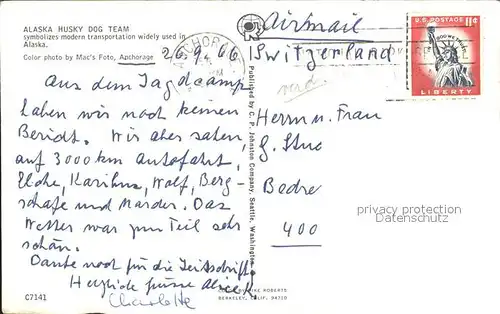 ALASKA HUSKY DOG TEAM
symbolizes modern transportation widely used in
Alaska.
Color photo by Mac's Foto, Anchorage
26.9.66
Aus dem Jagdcamp
haben wir noch keinen
Bericht. Wir aber sahen
auf 3000 km Autofahrt,
Elche, Karibus, Wolf, Berg-
schafe und Marder. Das
Wetter war zum Teil sehr
schön.
Danke noch für die Zeitschrift
Herzliche Grüsse Alice
Charlotte
C7141
MIKE ROBERTS
BERKELEY, CALIF. 94710
Published by C. P. Johnston Company, Seattle, Washington
Airmail
Switzerland
U.S. POSTAGE 11¢
IN GOD WE TRUST
LIBERTY
Herrn u. Frau
G.
400
privacy protection
Datenschutz